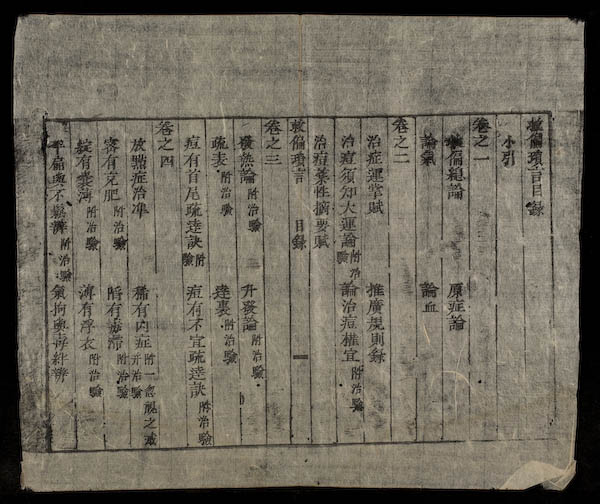 救偏瑣言目錄
小引
卷之一
救偏總論 原症論
論氣 論血
卷之二
治症運掌賦 推廣規則錄
治痘須知大運論附治驗 論治痘權宜附治驗
治痘藥性摘要賦
救偏瑣言 目錄 一
卷之三
發熱論附治驗 升發論附治驗
疏表附治驗 逹裏附治驗
痘有首尾疏逹訣附治驗 痘有不宜疏逹訣附治驗
卷之四
放點症治準 稀有内症附一忽醜之戒并治驗
密有克肥附治驗 陷有
綻有囊薄附治驗 薄有浮衣附治驗
平扁與不鬆辨附治驗 氣拘與毒絆辨